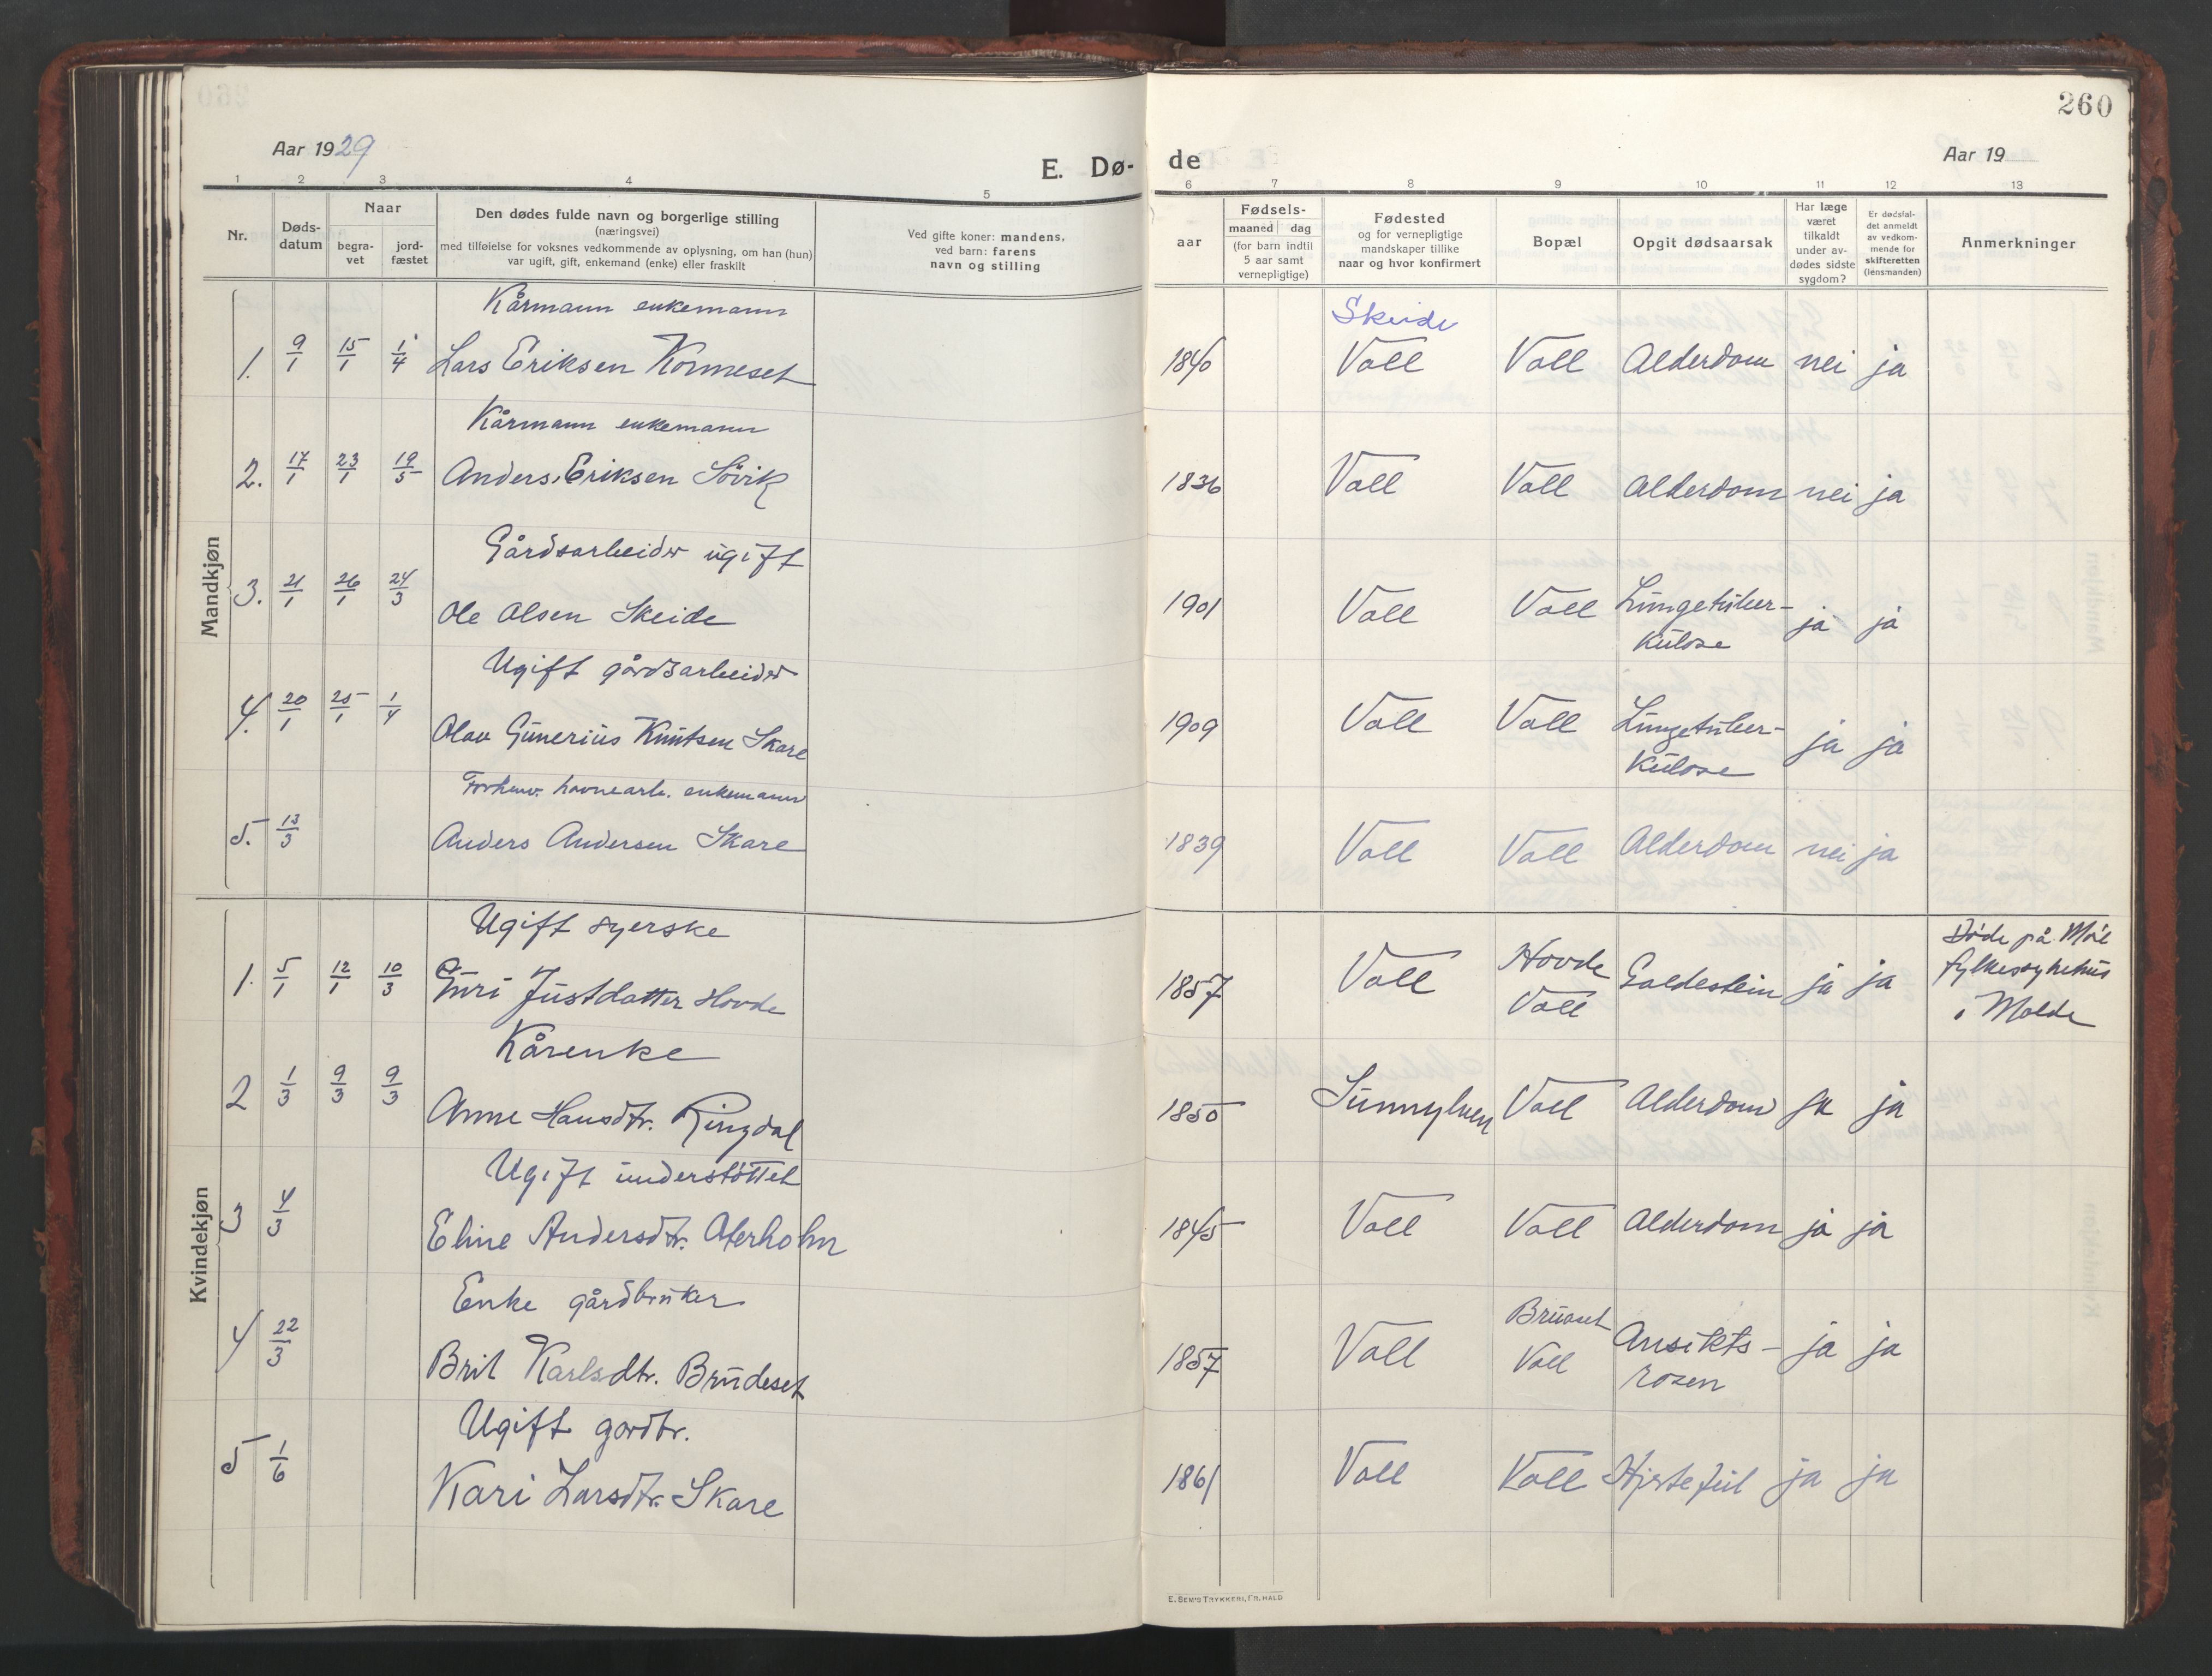 260
Aar 1929
E. Dø-
de
Aar 19
1 2 3 4 5 6 7 8 9 10 11 12 13
Nr.
Døds-
datum
Naar
begra-
vet
jord-
fæstet
Den dødes fulde navn og borgerlige stilling
(næringsvei)
med tilføielse for voksnes vedkommende av oplysning, om han (hun)
var ugift, gift, enkemand (enke) eller fraskilt
Ved gifte koner: mandens,
ved barn: farens
navn og stilling
Fødsels-
aar
maaned dag
(for barn indtil
5 aar samt
vernepligtige)
Fødested
og for vernepligtige
mandskaper tillike
naar og hvor konfirmert
Bopæl
Opgit dødsaarsak
Har læge
været
tilkaldt
under av-
dødes sidste
sygdom?
Er dødsfal-
det anmeldt
av vedkom-
mende for
skifteretten
(lensmanden)
Anmerkninger
Mandkjøn
Kårmann enkemann Skeide
1. 9/1 15/1 1/4 Lars Eriksen Vormeset 1840 Voll Voll Alderdom nei ja
Kårmann enkemann
2. 17/1 23/1 19/5 Anders Eriksen Søvik 1836 Voll Voll Alderdom nei ja
Gårdsarbeider ugift
3. 21/1 26/1 24/3 Ole Olsen Skeide 1901 Voll Voll Lungetuber-
kulose ja ja
Ugift gårdsarbeider
4. 20/1 25/1 1/4 Olav Gunerius Knutsen Skare 1909 Voll Voll Lungetuber-
kulose ja ja
Forhenv. havnearb. enkemann
5. 13/3 Anders Andersen Skare 1839 Voll Voll Alderdom nei ja
Kvindekjøn
Ugift syerske
1. 5/1 12/1 10/3 Guri Justdatter Hovde 1857 Voll Hovde
Voll Galdestein ja ja Døde på
fylkessykehus
i Molde
Kårenke
2 1/3 9/3 9/3 Anne Hansdtr. Ringdal 1850 Sunnylven Voll Alderdom ja ja
Ugift understøttet
3 4/3 Eline Andersdtr. 1845 Voll Voll Alderdom ja ja
Enke gårdbruker
4 22/3 Brit Karlsdtr. Brudeset 1857 Voll Bruaset
Voll Ansikts-
rosen ja ja
Ugift gardtr.
5 1/6 Kari Larsdtr. Skare 1861 Voll Voll Hjertefeil ja ja
E. SEM'S TRYKKERI, FR.HALD